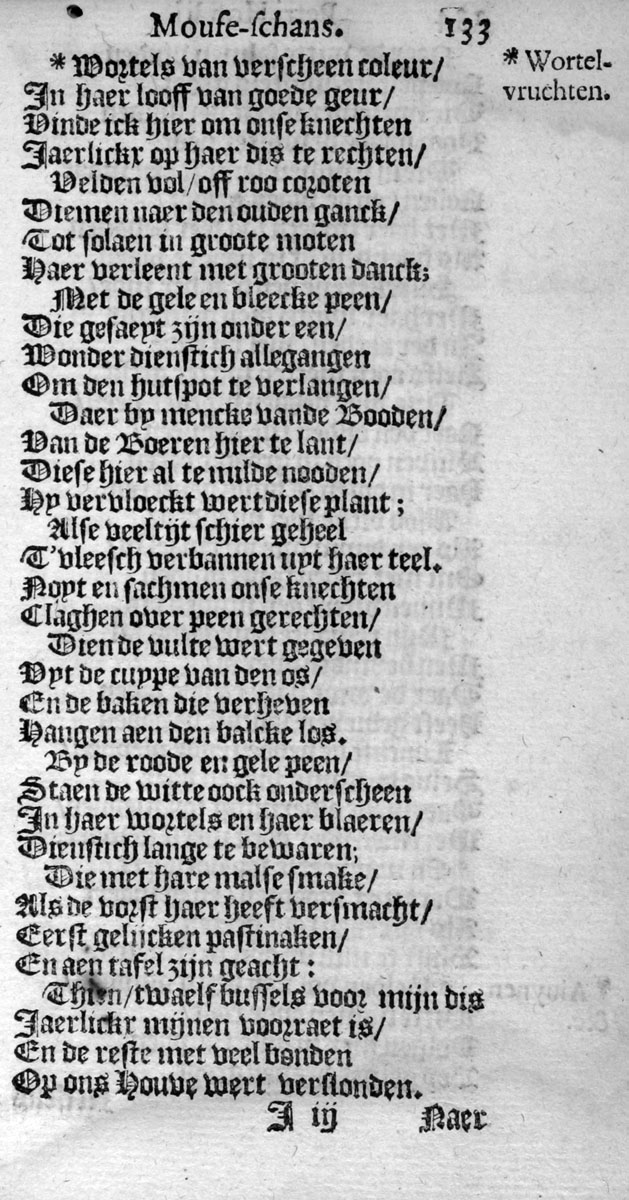 Moufe-schans. 133
* Wortels van verscheen coleur/
* Wortel-
vruchten.
In haer looff van goede geur/
Vinde ick hier om onse knechten
Jaerlickx op haer dis te rechten/
Velden vol/ off roo coroten
Diemen naer den ouden ganck/
Tot solaen in groote moten
Haer verleent met grooten danck;
Met de gele en bleecke peen/
Die gesaeyt zijn onder een/
Wonder dienstich allegangen
Om den hutspot te verlangen/
Daer by mencke vande Booden/
Van de Boeren hier te lant/
Diese hier al te milde nooden/
Hy vervloeckt wert diese plant;
Alse veeltijt schier geheel
T'vleesch verbannen uyt haer teel.
Noyt en sachmen onse knechten
Claghen over peen gerechten/
Dien de vulte wert gegeven
Vyt de cuype van den os/
En de baken die verheven
Hangen aen den balcke los.
By de roode en gele peen/
Staen de witte oock onderscheen
In haer wortels en haer blaeren/
Dienstich lange te bewaren;
Die met hare malse smake/
Als de vorst haer heeft versmacht/
Eerst gelijcken pastinaken/
En aen tafel zijn geacht:
Thien/ twaelf bussels voor mijn dis
Jaerlickx mijnen voorraet is/
En de reste met veel bonden
Op ons Houve wert verslonden.
I iij Naer